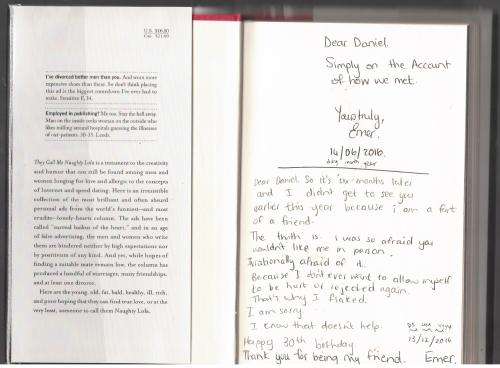 U.S. $16.00
I've divorced better men than you. And worn more
expensive shoes than these. So don't think placing
this ad is the biggest comedown I've ever had to
make. Sensitive F, 34.
Employed in publishing? Me too. Stay the hell away.
Man on the inside seeks woman on the outside who
likes milling around hospitals guessing the illnesses
of out-patients. 30–35. Leeds.
They Call Me Naughty Lola is a testament to the creativity
and humor that can still be found among men and
women longing for love and allergic to the concepts
of Internet and speed dating. Here is an irresistible
collection of the most brilliant and often absurd
personal ads from the world's funniest—and most
erudite—lonely-hearts column. The ads have been
called "surreal haikus of the heart," and in an age
of false advertising, the men and women who write
them are hindered neither by high expectations nor
by positivism of any kind. And yet, while hopes of
finding a suitable mate remain low, the column has
produced a handful of marriages, many friendships,
and at least one divorce.
Here are the young, old, fat, bald, healthy, ill, rich,
and poor hoping that they can find true love, or at the
very least, someone to call them Naughty Lola.
Dear Daniel.
Simply on the Account
of how we met.
Yours truly,
Emer.
14/06/2016.
day month year
Dear Daniel. So it's six months later
and I didn't get to see you
earlier this year because i am a fart
of a friend.
The truth is I was so afraid you
wouldn't like me in person.
Irrationally afraid of it.
Because I don't ever want to allow myself
to be hurt or rejected again.
That's why I flaked.
I am sorry
I know that doesn't help.
13/12/2016
Happy 30th birthday
Thank you for being my friend. Emer.